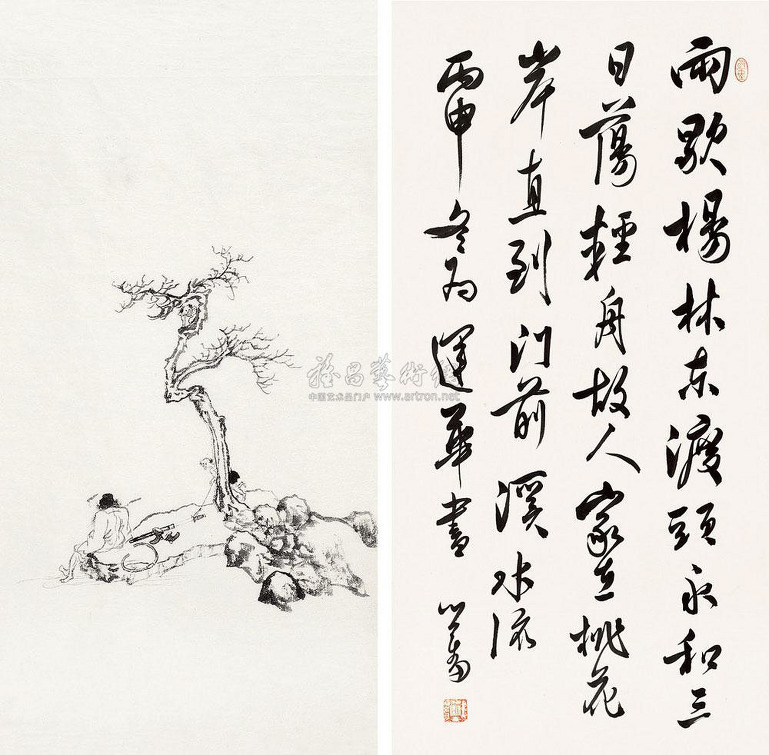 雨歇楊林东渡頭永和三
日蕩輕舟故人家在桃花
岸直到门前溪水流
丙申冬为運華書 心畬
雅昌藝術網
中国艺术品门户 www.artron.net